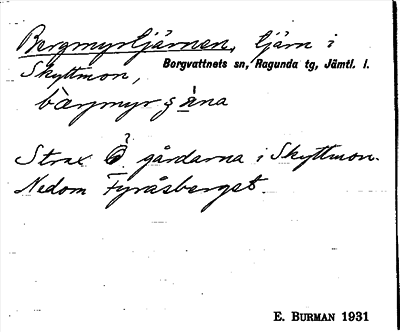 Bergmyrtjärnen, tjärn i
Skyttmon, Borgvattnets sn, Ragunda tg, Jämtl. l.
bærjmyr
Strax Ö. gårdarna i Skyttmon.
Nedom Fyråsberget.
E. BURMAN 1931